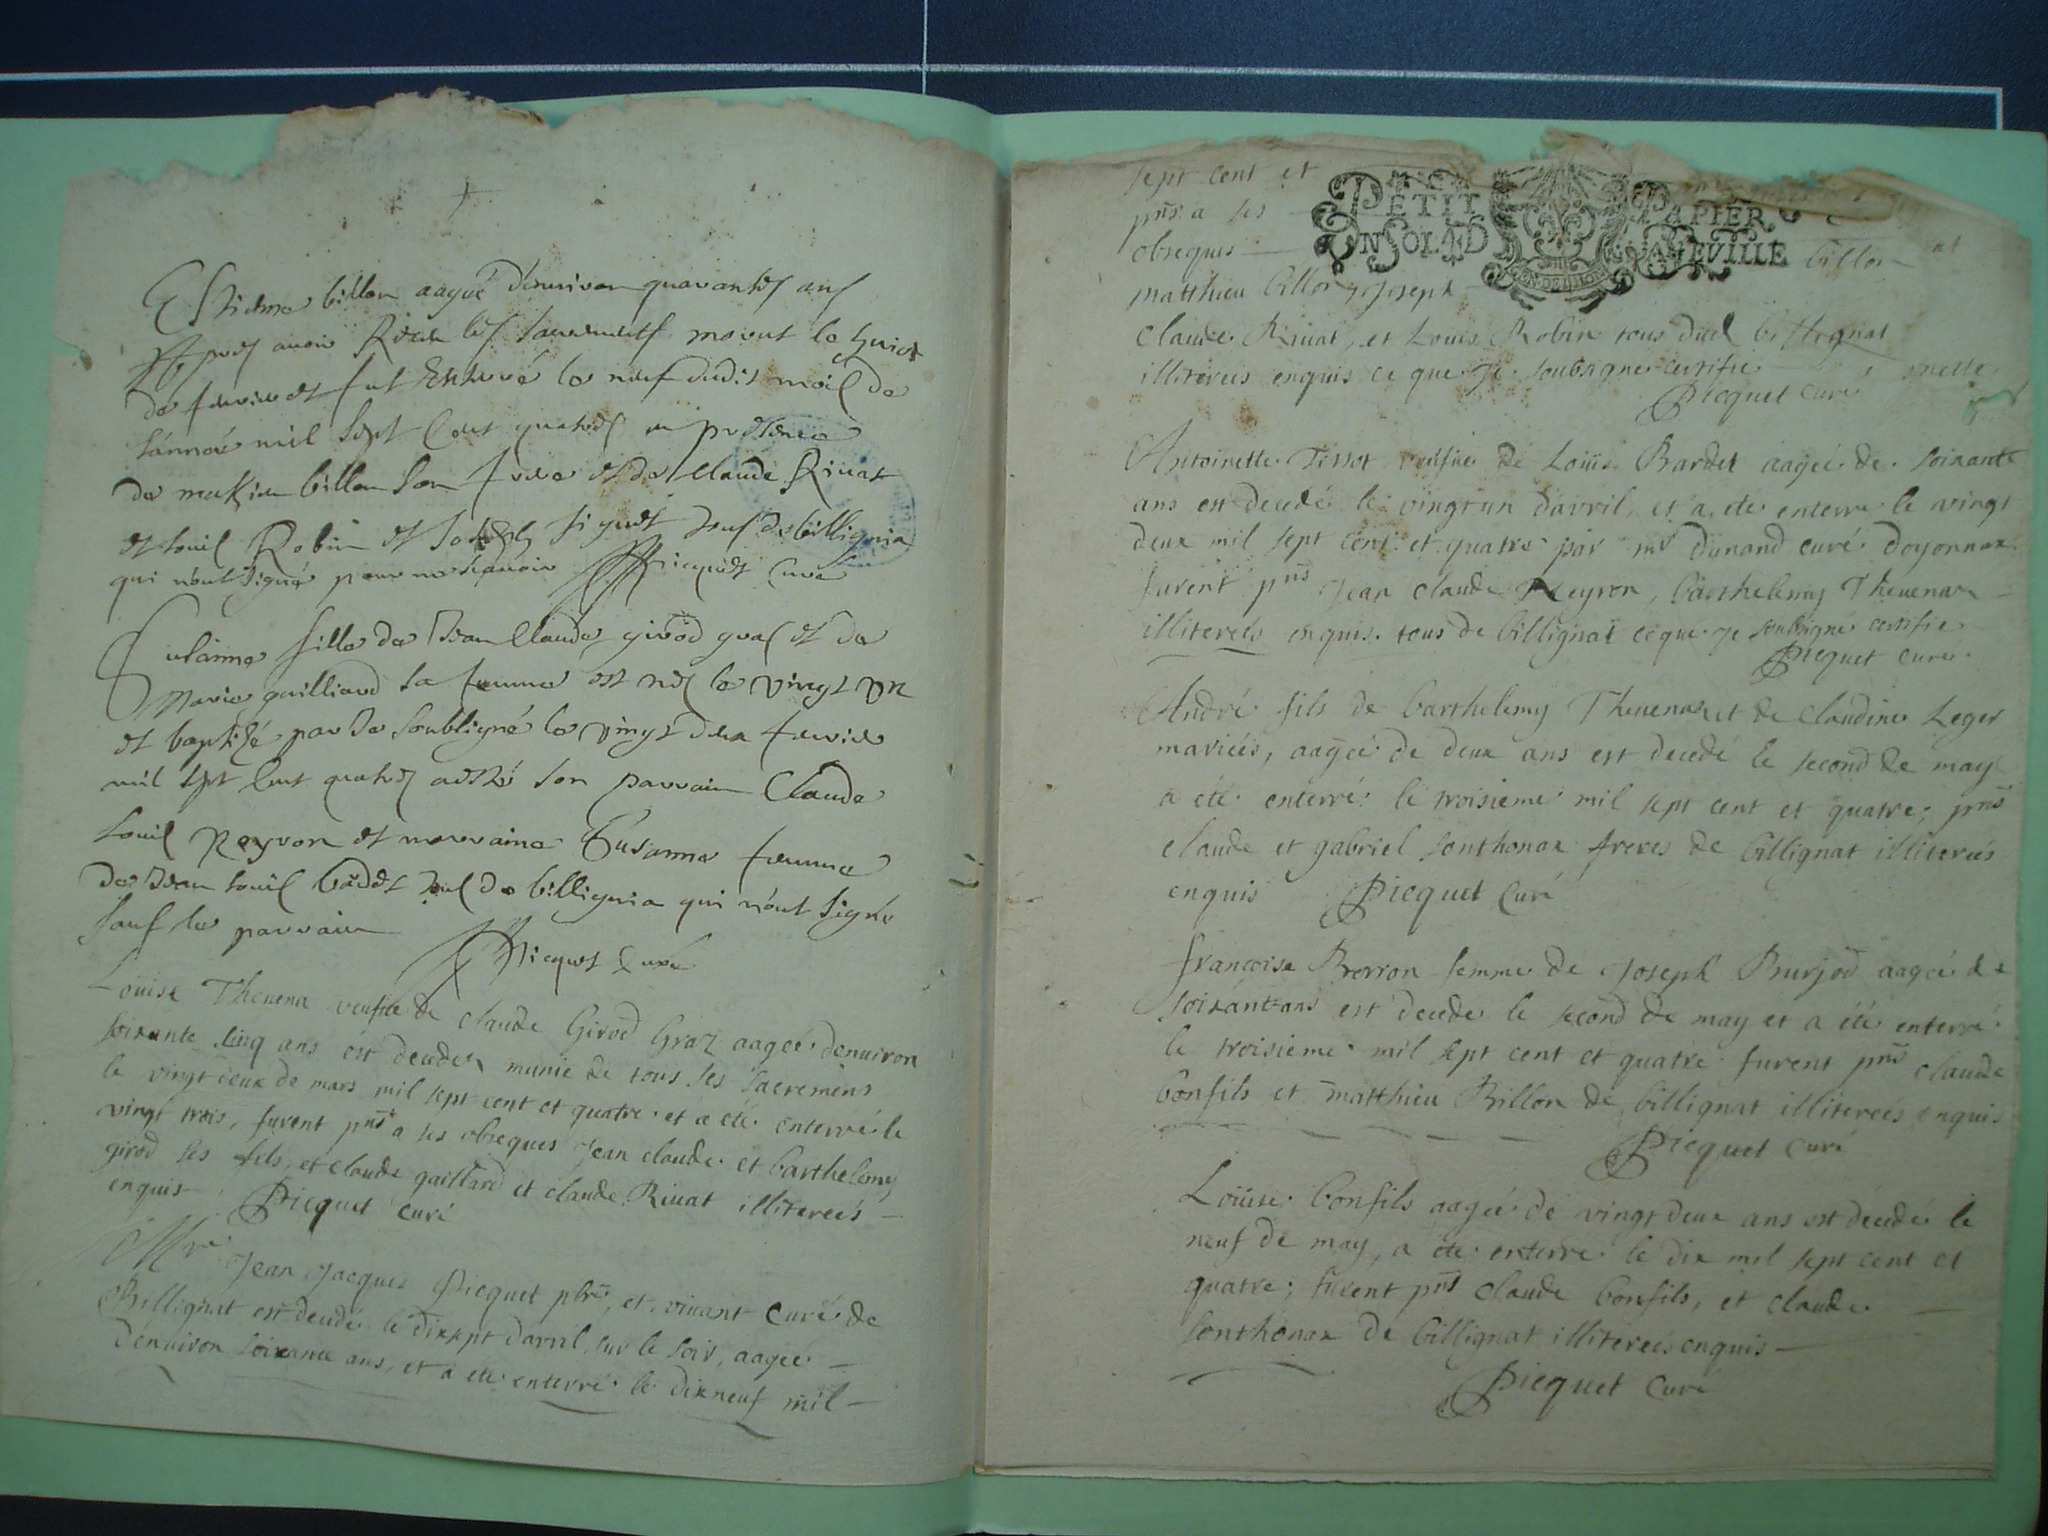 Estienne billon aagué d'enuiron quarantes ans
Apres auoir Receu les sacrements mourut le huict
de feurier et fut Enterré le neuf dudit mois de
l'année mil sept cent quatres en presence
de mathieu billon son frere et de Claude Riuat
et louis Robin et Joseph tous de billignia
qui n'ont signé pour ne scauoir Picquet Curé
Susanne fille de Jean Claude girod graz et de
Marie guilliard sa femme est nés le vingt un
et baptizé par Je soubsigné le vingt deux feurier
mil sept cent quatres a esté son parrain Claude
Louis Neyron et marraine Susanne femme
de Jean louis bádet tous de billignia qui n'ont signés
sauf le parrain
Picquet Curé
Louise Theuena veufue de claude Girod Graz aageé denuiron
soixante cinq ans est decedeé munie de tous ses sacremens
le vingt deux de mars mil sept cent et quatre et a eté enterré le
vingt trois, furent pñs a ses obseques Jean claude et barthelemy
girod ses fils, et claude gaillard et claude Riuat illitereés
enquis Picquet curé
Mre Jean Jacques Picquet pbre, et viuant curé de
Billignat est decedé le dixsept davril, sur le soir, aageé
denuiron soixante ans, et a eté enterré le dixneuf mil
sept cent et
pñs a ses
obseques billon
PETIT PAPIER
UN SOL 4 D LA FEUILLE
matthieu billon, Joseph
claude Riuat, et Louis Robin tous dud billignat
illitereés enquis ce que je soubsigné certifie
Picquet curé
Antoinette Tissot veufue de Loüis Bardet aageé de soixante
ans est decedé le vingt un davril, et a eté enterré le vingt
deux mil sept cent et quatre par mr Dunand curé doyonnax
furent pñs Jean claude Neyron, barthelemy Theuenar
illitereés enquis tous de billignat ce que je soubsigné certifie
Picquet curé
André fils de barthelemy Theuenar et de claudine Leger
marieés, aageé de deux ans est decedé le second de may
a eté enterré le troisieme mil sept cent et quatre, pñs
claude et gabriel sonthonax freres de billignat illitereés
enquis Picquet Curé
françoise Brorion femme de Joseph Burjod aageé de
soixant ans est decedé le second de may et a eté enterré
le troisieme mil sept cent et quatre furent pñs claude
bonfils et matthieu Billon de billignat illitereés enquis
Picquet curé
Loüise bonfils aageé de vingt deux ans est decedé le
neuf de may, a eté enterré le dix mil sept cent et
quatre; furent pñs claude bonfils, et claude
sonthonax de billignat illitereés enquis
Picquet Curé